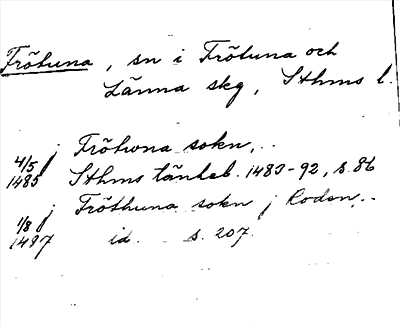 Frötuna, sn i Frötuna och
Länna skg, Sthms l.
j Frötwna sokn,..
4/5
1485 Sthms tänkeb. 1483-92, s. 86
j Fröthuna sokn j Roden..
1/8
1487 id. s. 207.